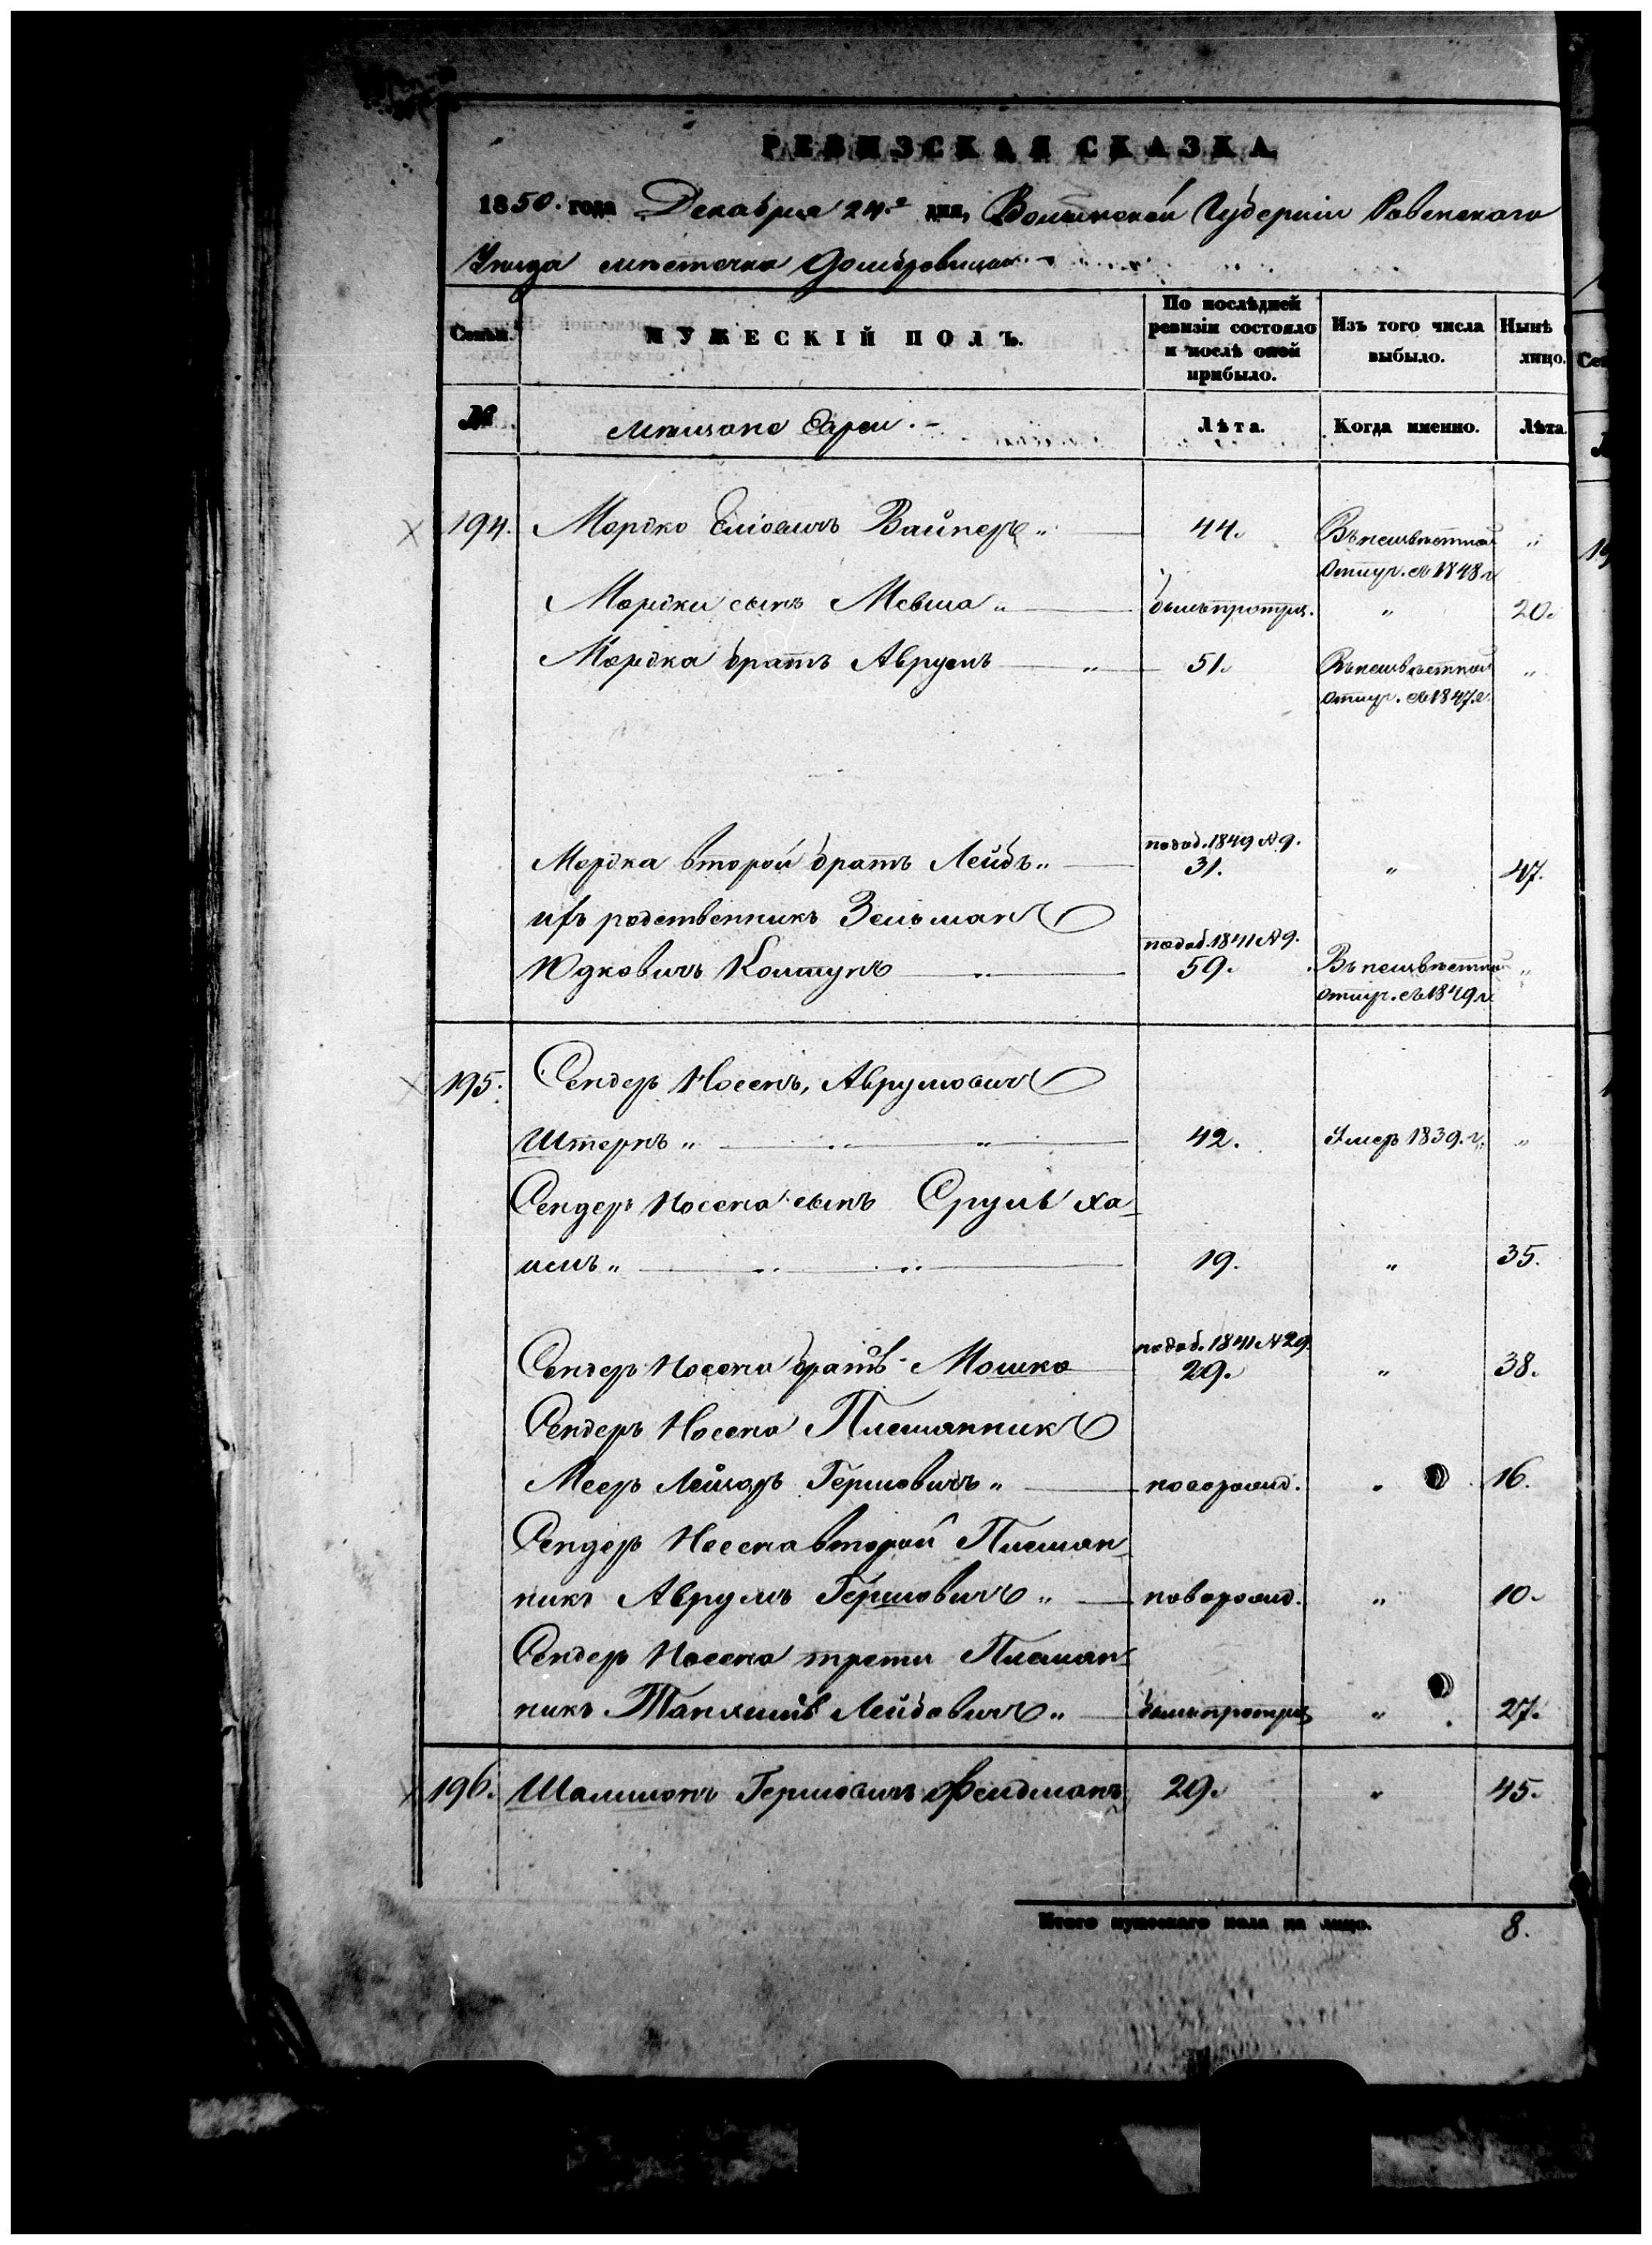 РЕВИЗСКАЯ СКАЗКА
1850. года Декабря 24.го дня, Волынской Губерніи Ровенскаго
Уѣзда мѣстечка Домбровицы
Семьи. МУЖЕСКІЙ ПОЛЪ. По послѣдней ревизіи состояло и послѣ оной прибыло. Изъ того числа выбыло. Нынѣ лицо.
№ мѣщане Евреи. Лѣта. Когда именно. Лѣта.
194. Мордко Еліовичъ Вайнеръ „ 44. Въ неизвѣстной отлуч. съ 1848 г „
Мордки сынъ Мевша „ былъ пропущ. „ 20.
Мордка братъ Аврумъ „ 51. Въ неизвѣстной отлуч. съ 1847 г. „
Мордка второй братъ Лейбъ „ по доб. 1849 № 9. 31. „ 47.
ихъ родственникъ Зельманъ
Юдковичъ Колтунъ „ по доб. 1841 № 9. 59. Въ неизвѣстной отлуч. съ 1849 г. „
195. Сендеръ Носенъ, Аврумовичъ
Штернъ „ „ 42. Умеръ 1839. г. „
Сендеръ Носена сынъ Сруль Ха-
имъ „ 19. „ 35.
Сендеръ Носена братъ Мошко по доб. 1841 № 29. 29. „ 38.
Сендеръ Носена Племянникъ
Мееръ Лейзоръ Гершовичъ „ новорожд. „ 16.
Сендеръ Носена второй Племян-
никъ Аврумъ Гершовичъ „ новорожд. „ 10.
Сендеръ Носена трети Племян-
никъ Танхимъ Лейбовичъ „ былъ пропущ „ 27.
196. Шлиомонъ Гершовичъ Фельдманъ 29. „ 45.
Итого мужескаго пола на лицо. 8.